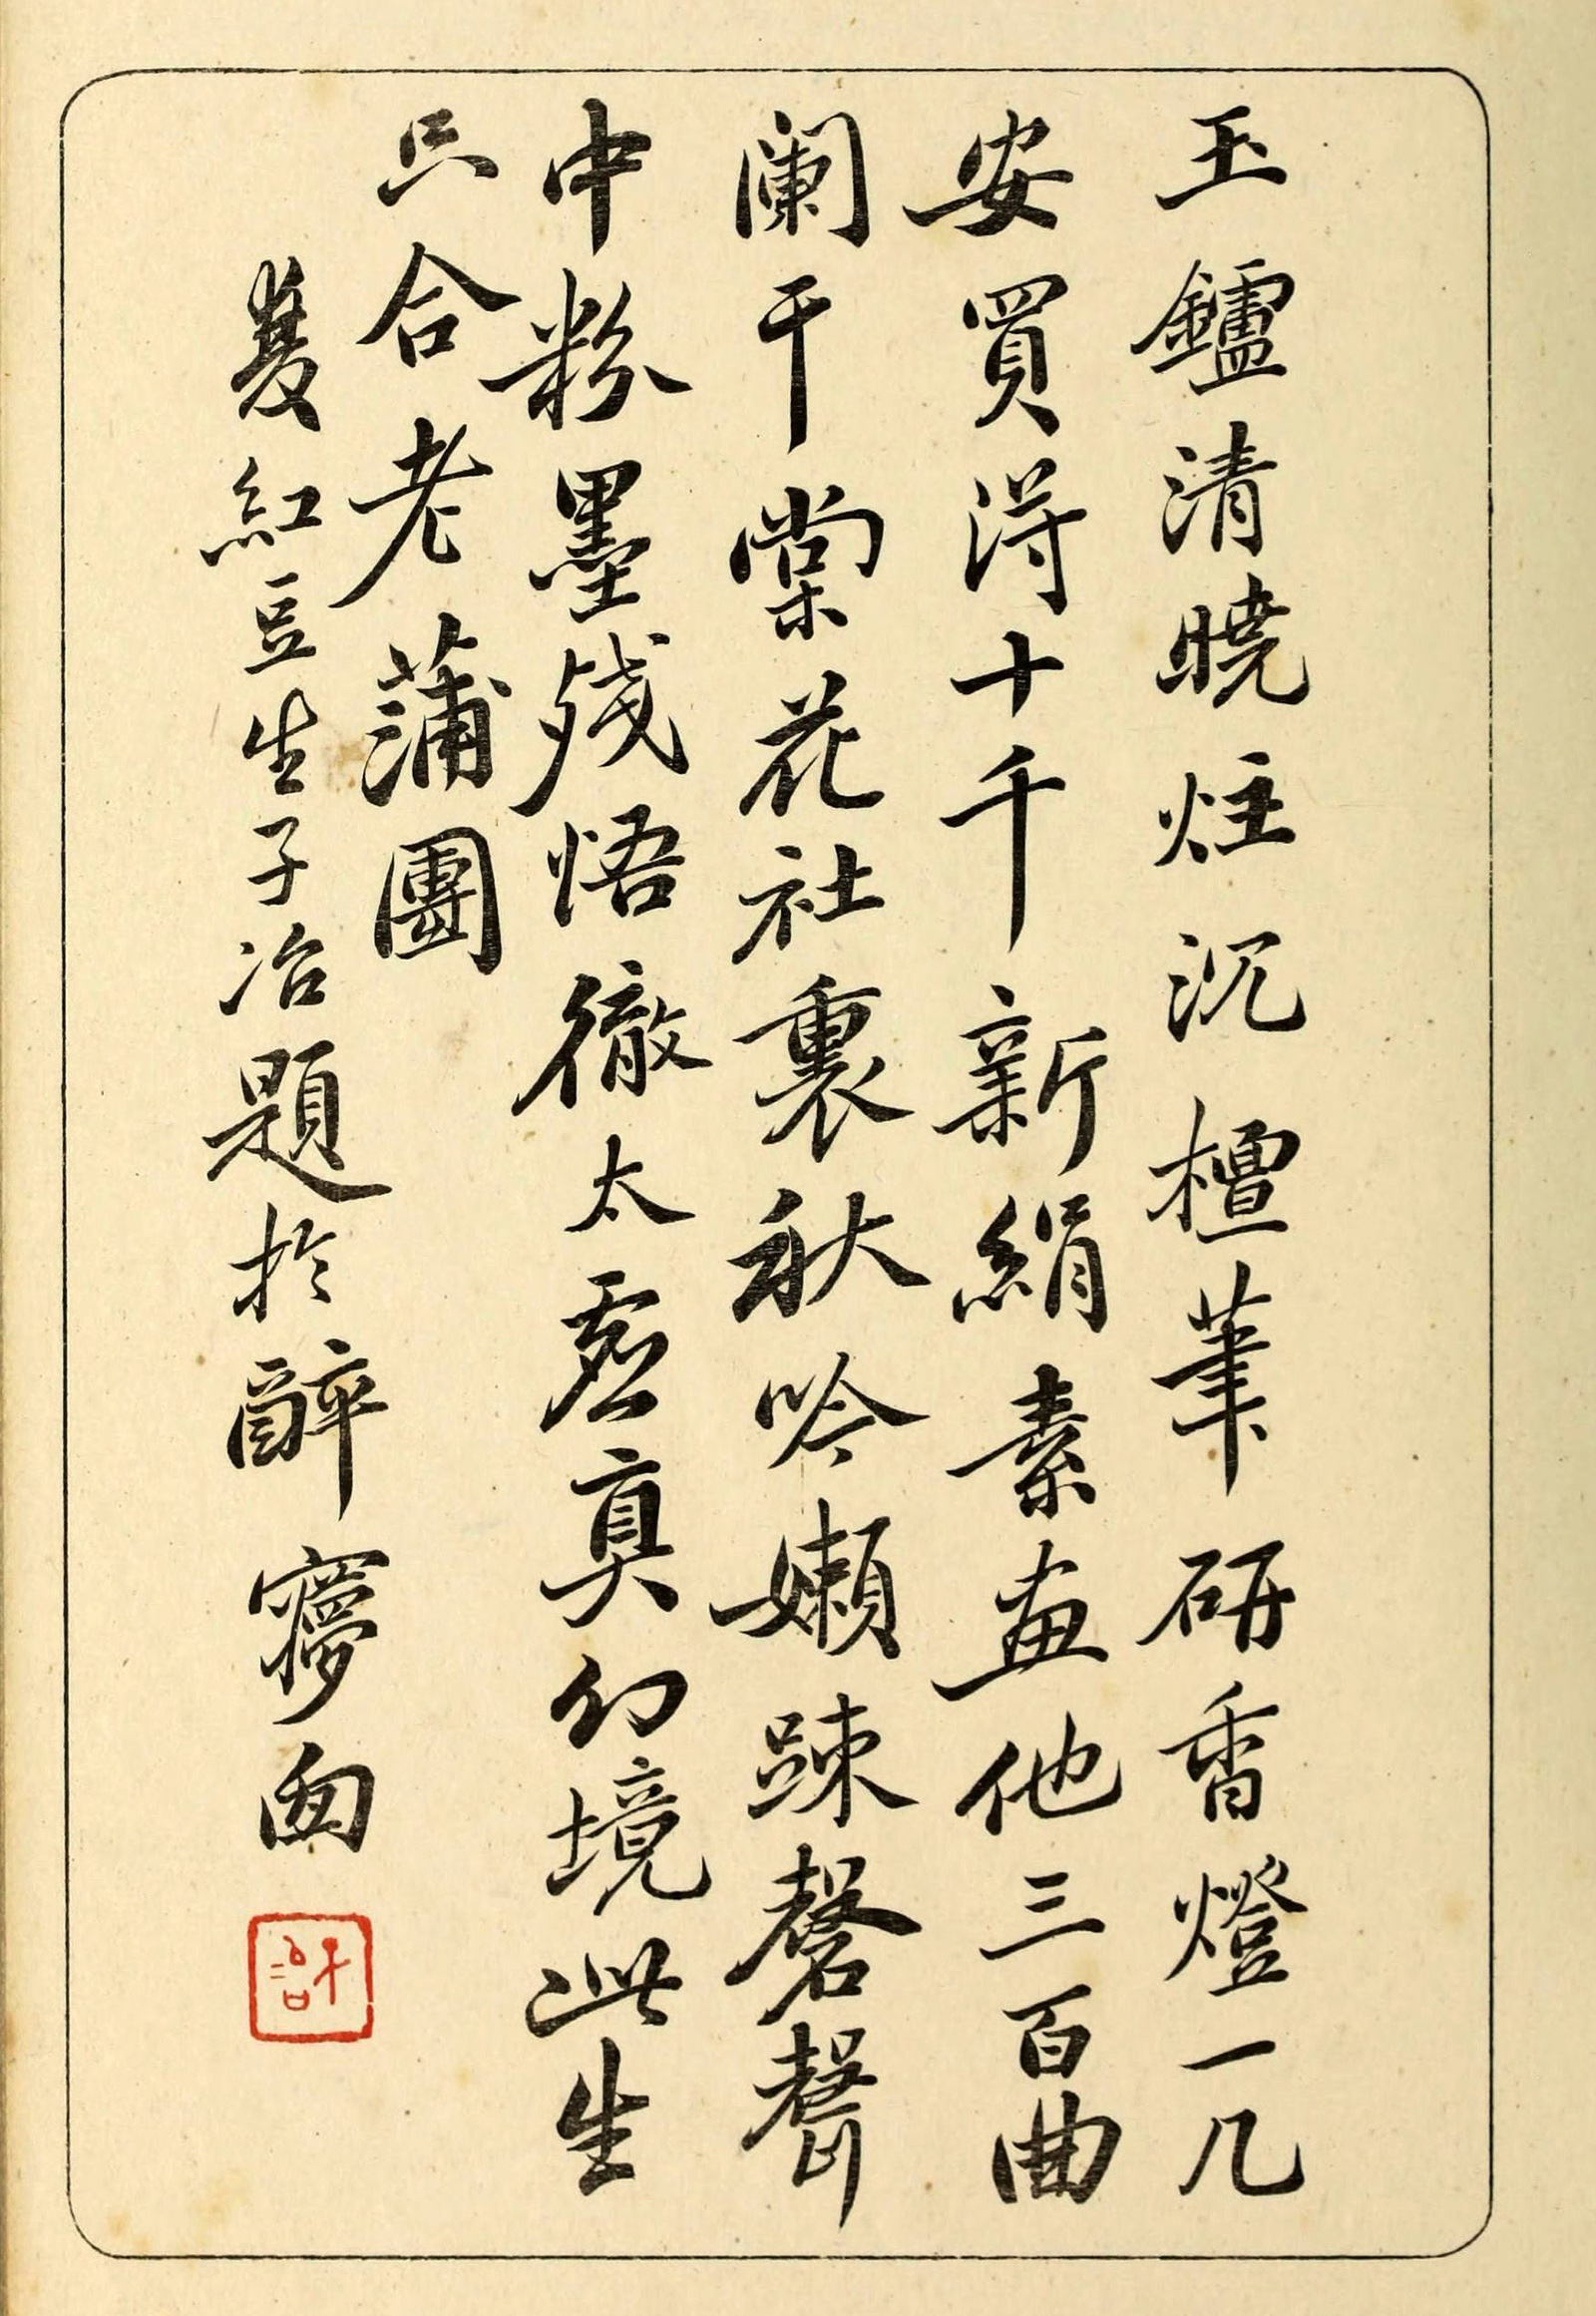 玉鑪清曉炷沉檀筆研香燈一几
安買得十千新絹素畫他三百曲
闌干棠花社裏秋吟嬾踈磬聲
中粉墨殘悟徹太虛真幻境此生
只合老蒲團
紅豆生子冶題於醉夢
許